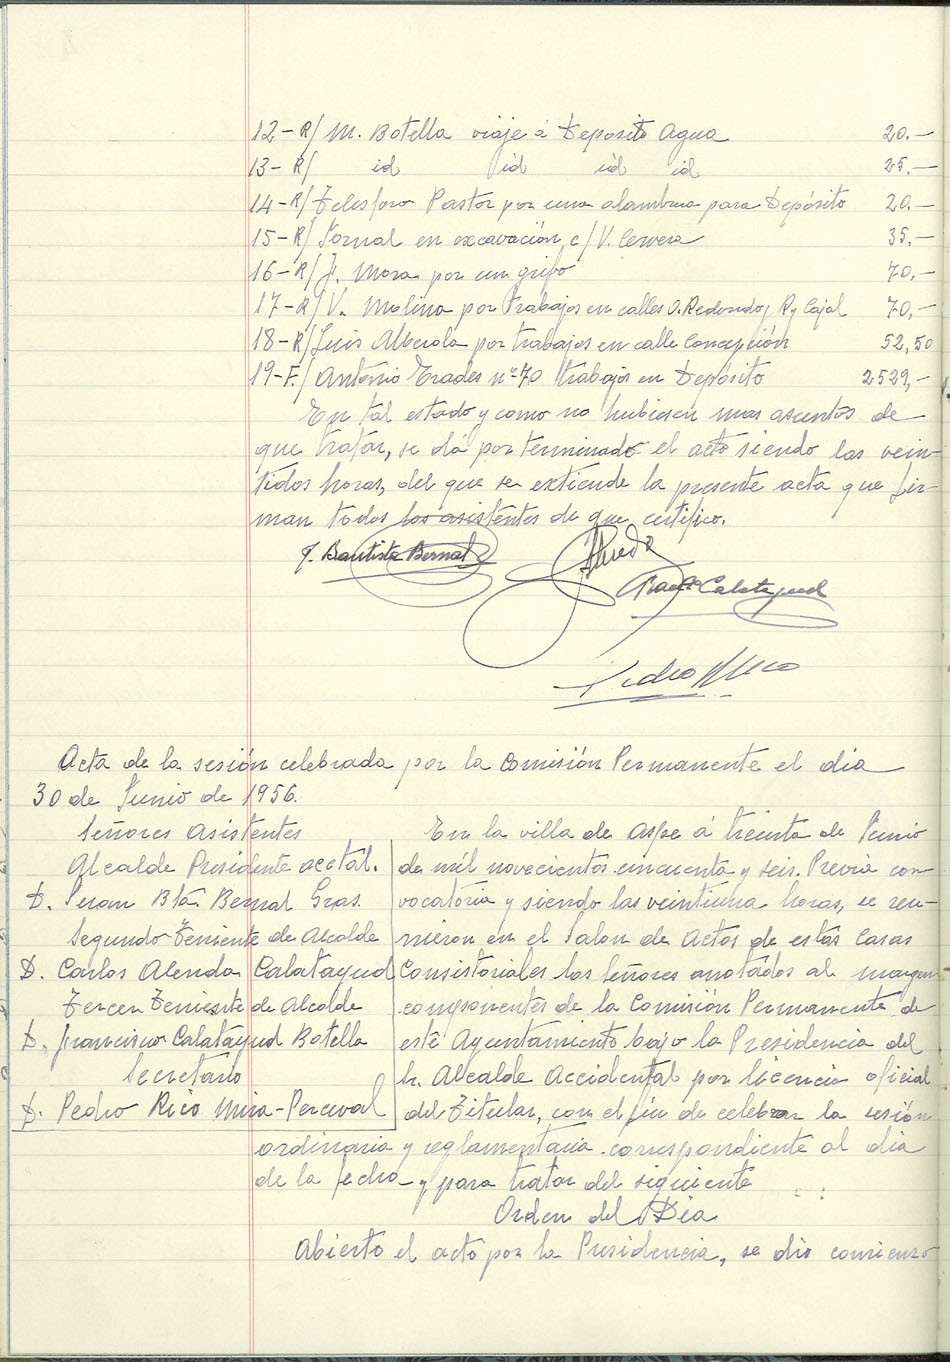 12-R/ M. Botella viaje á Deposito Agua 20.-
13-R/ id id id id 25.-
14-R/ Telesforo Pastor por una alambrera para Depósito 20.-
15-R/ Jornal en excavación c/ V. Cervera 35.-
16-R/ J. Mora por un grifo 70,-
17-R/ V. Molina por trabajos en calles O. Redondo, R y Cajal 70,-
18-R/ Luis Alberola por trabajos en calle Concepción 52,50
19-F./ Antonio Erades nº 70 trabajos en Depósito 2529,-
En tal estado y como no hubiesen mas asuntos de
que tratar, se dá por terminado el acto siendo las vein-
tidos horas, del que se extiende la presente acta que fir-
man todos los asistentes de que certifico.
J. Bautista Bernal
Calatayud
Pedro Rico
Acta de la sesión celebrada por la Comisión Permanente el dia
30 de Junio de 1956.
Señores Asistentes
Alcalde Presidente acctal.
D. Juan Bta Bernal Gras.
Segundo Teniente de Alcalde
D. Carlos Alenda Calatayud
Tercer Teniente de Alcalde
D. Francisco Calatayud Botella
Secretario
D. Pedro Rico Mira-Perceval
En la villa de Aspe á treinta de Junio
de mil novecientos cincuenta y seis. Previa con
vocatoria y siendo las veintiuna horas, se reu-
nieron en el Salon de Actos de estas Casas
Consistoriales los Señores anotados al margen
componentes de la Comisión Permanente de
esté Ayuntamiento bajo la Presidencia del
Sr. Alcalde Accidental por licencia oficial
del Titular, con el fin de celebrar la sesión
ordinaria y reglamentaria correspondiente al dia
de la fecha y para tratar del siguiente
Orden del Dia
Abierto el acto por la Presidencia, se dio comienzo